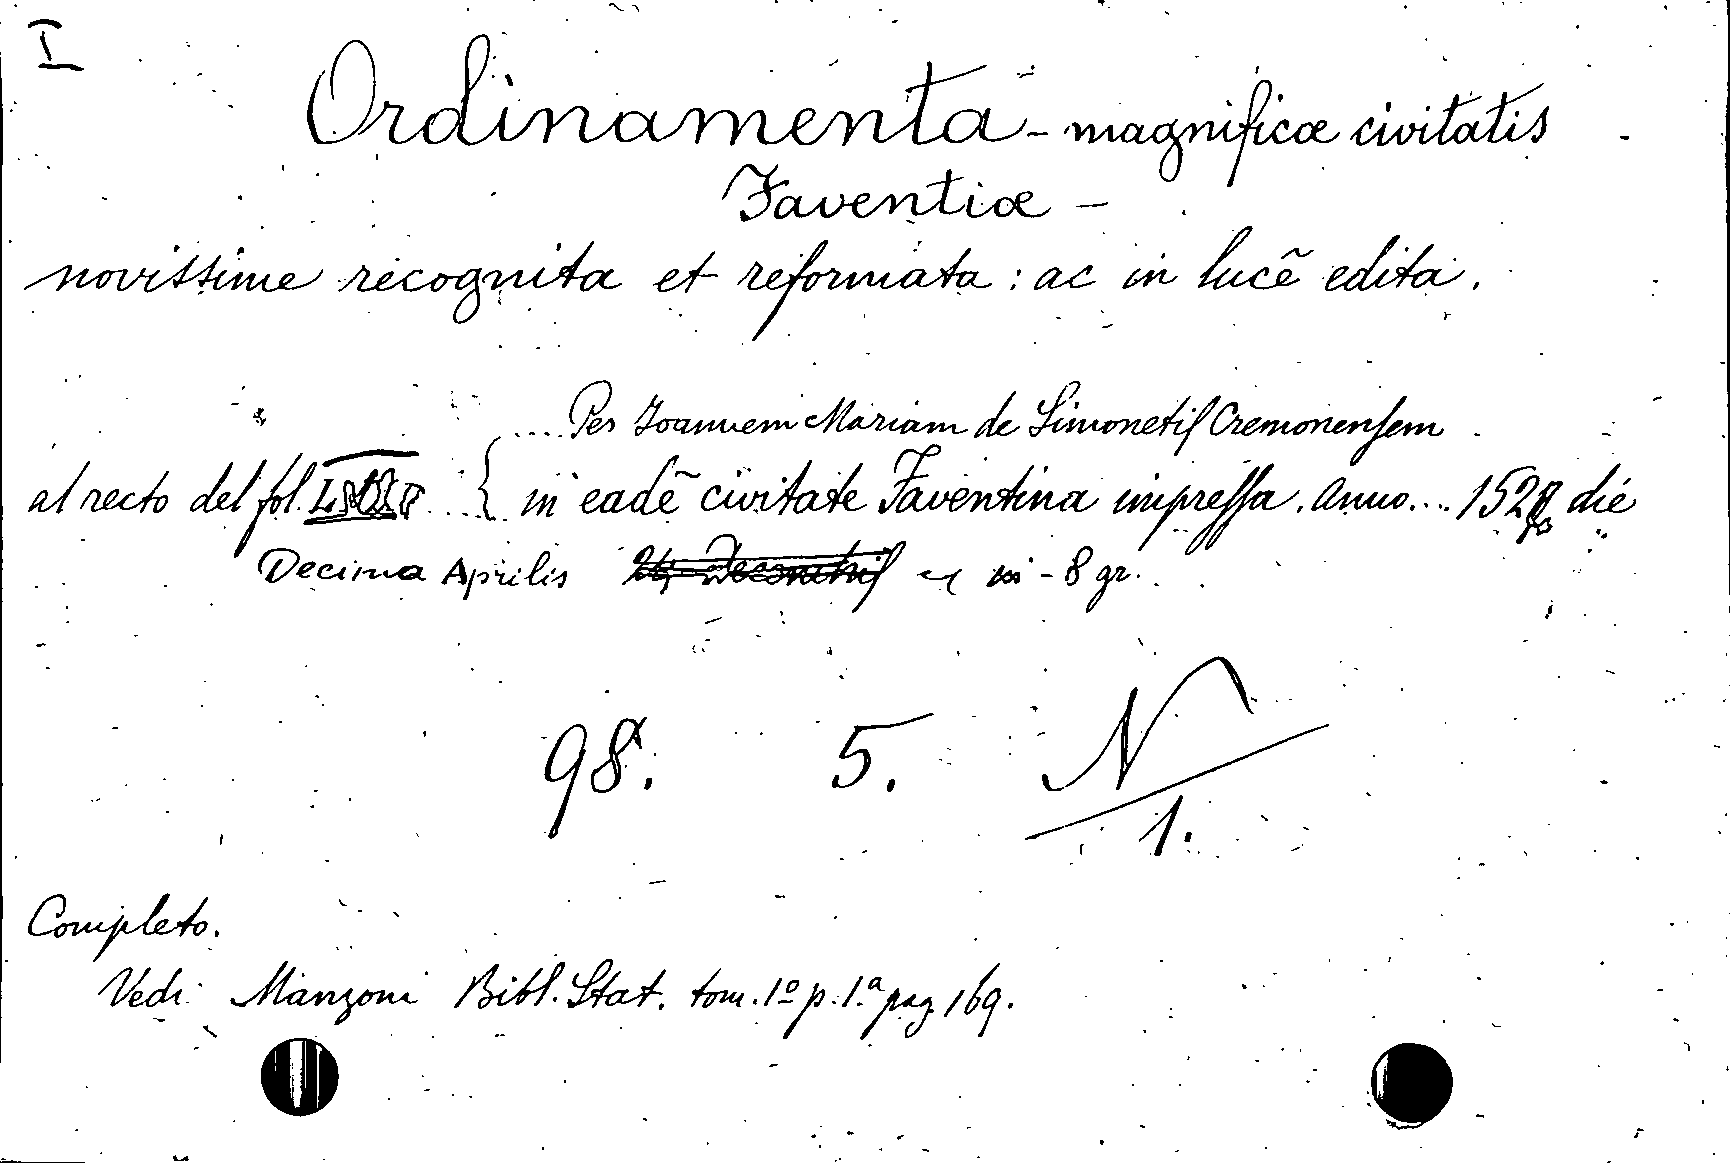 I
Ordinamenta - magnificæ civitatis
Faventiæ -
novissime recognita et reformata : ac in lucẽ edita.
.... Per Joannem Mariam de Simonetis Cremonensem
al recto del fol. { in eadẽ civitate Faventina impressa. Anno... die
Decima Aprilis in - 8 gr.
98. 5. N/1.
Completo.
Vedi Manzoni Bibl. Stat. tom. 1º p. 1.ª pag. 169.